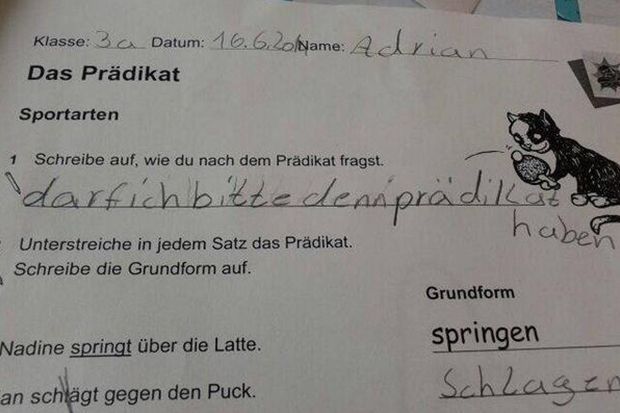 Klasse: 3a Datum: 16.6.2014 Name: Adrian
Das Prädikat
Sportarten
1 Schreibe auf, wie du nach dem Prädikat fragst.
darf ich bitte denn prädikat
haben
Unterstreiche in jedem Satz das Prädikat.
Schreibe die Grundform auf.
Grundform
Nadine springt über die Latte.
springen
an schlägt gegen den Puck.
Schlagen